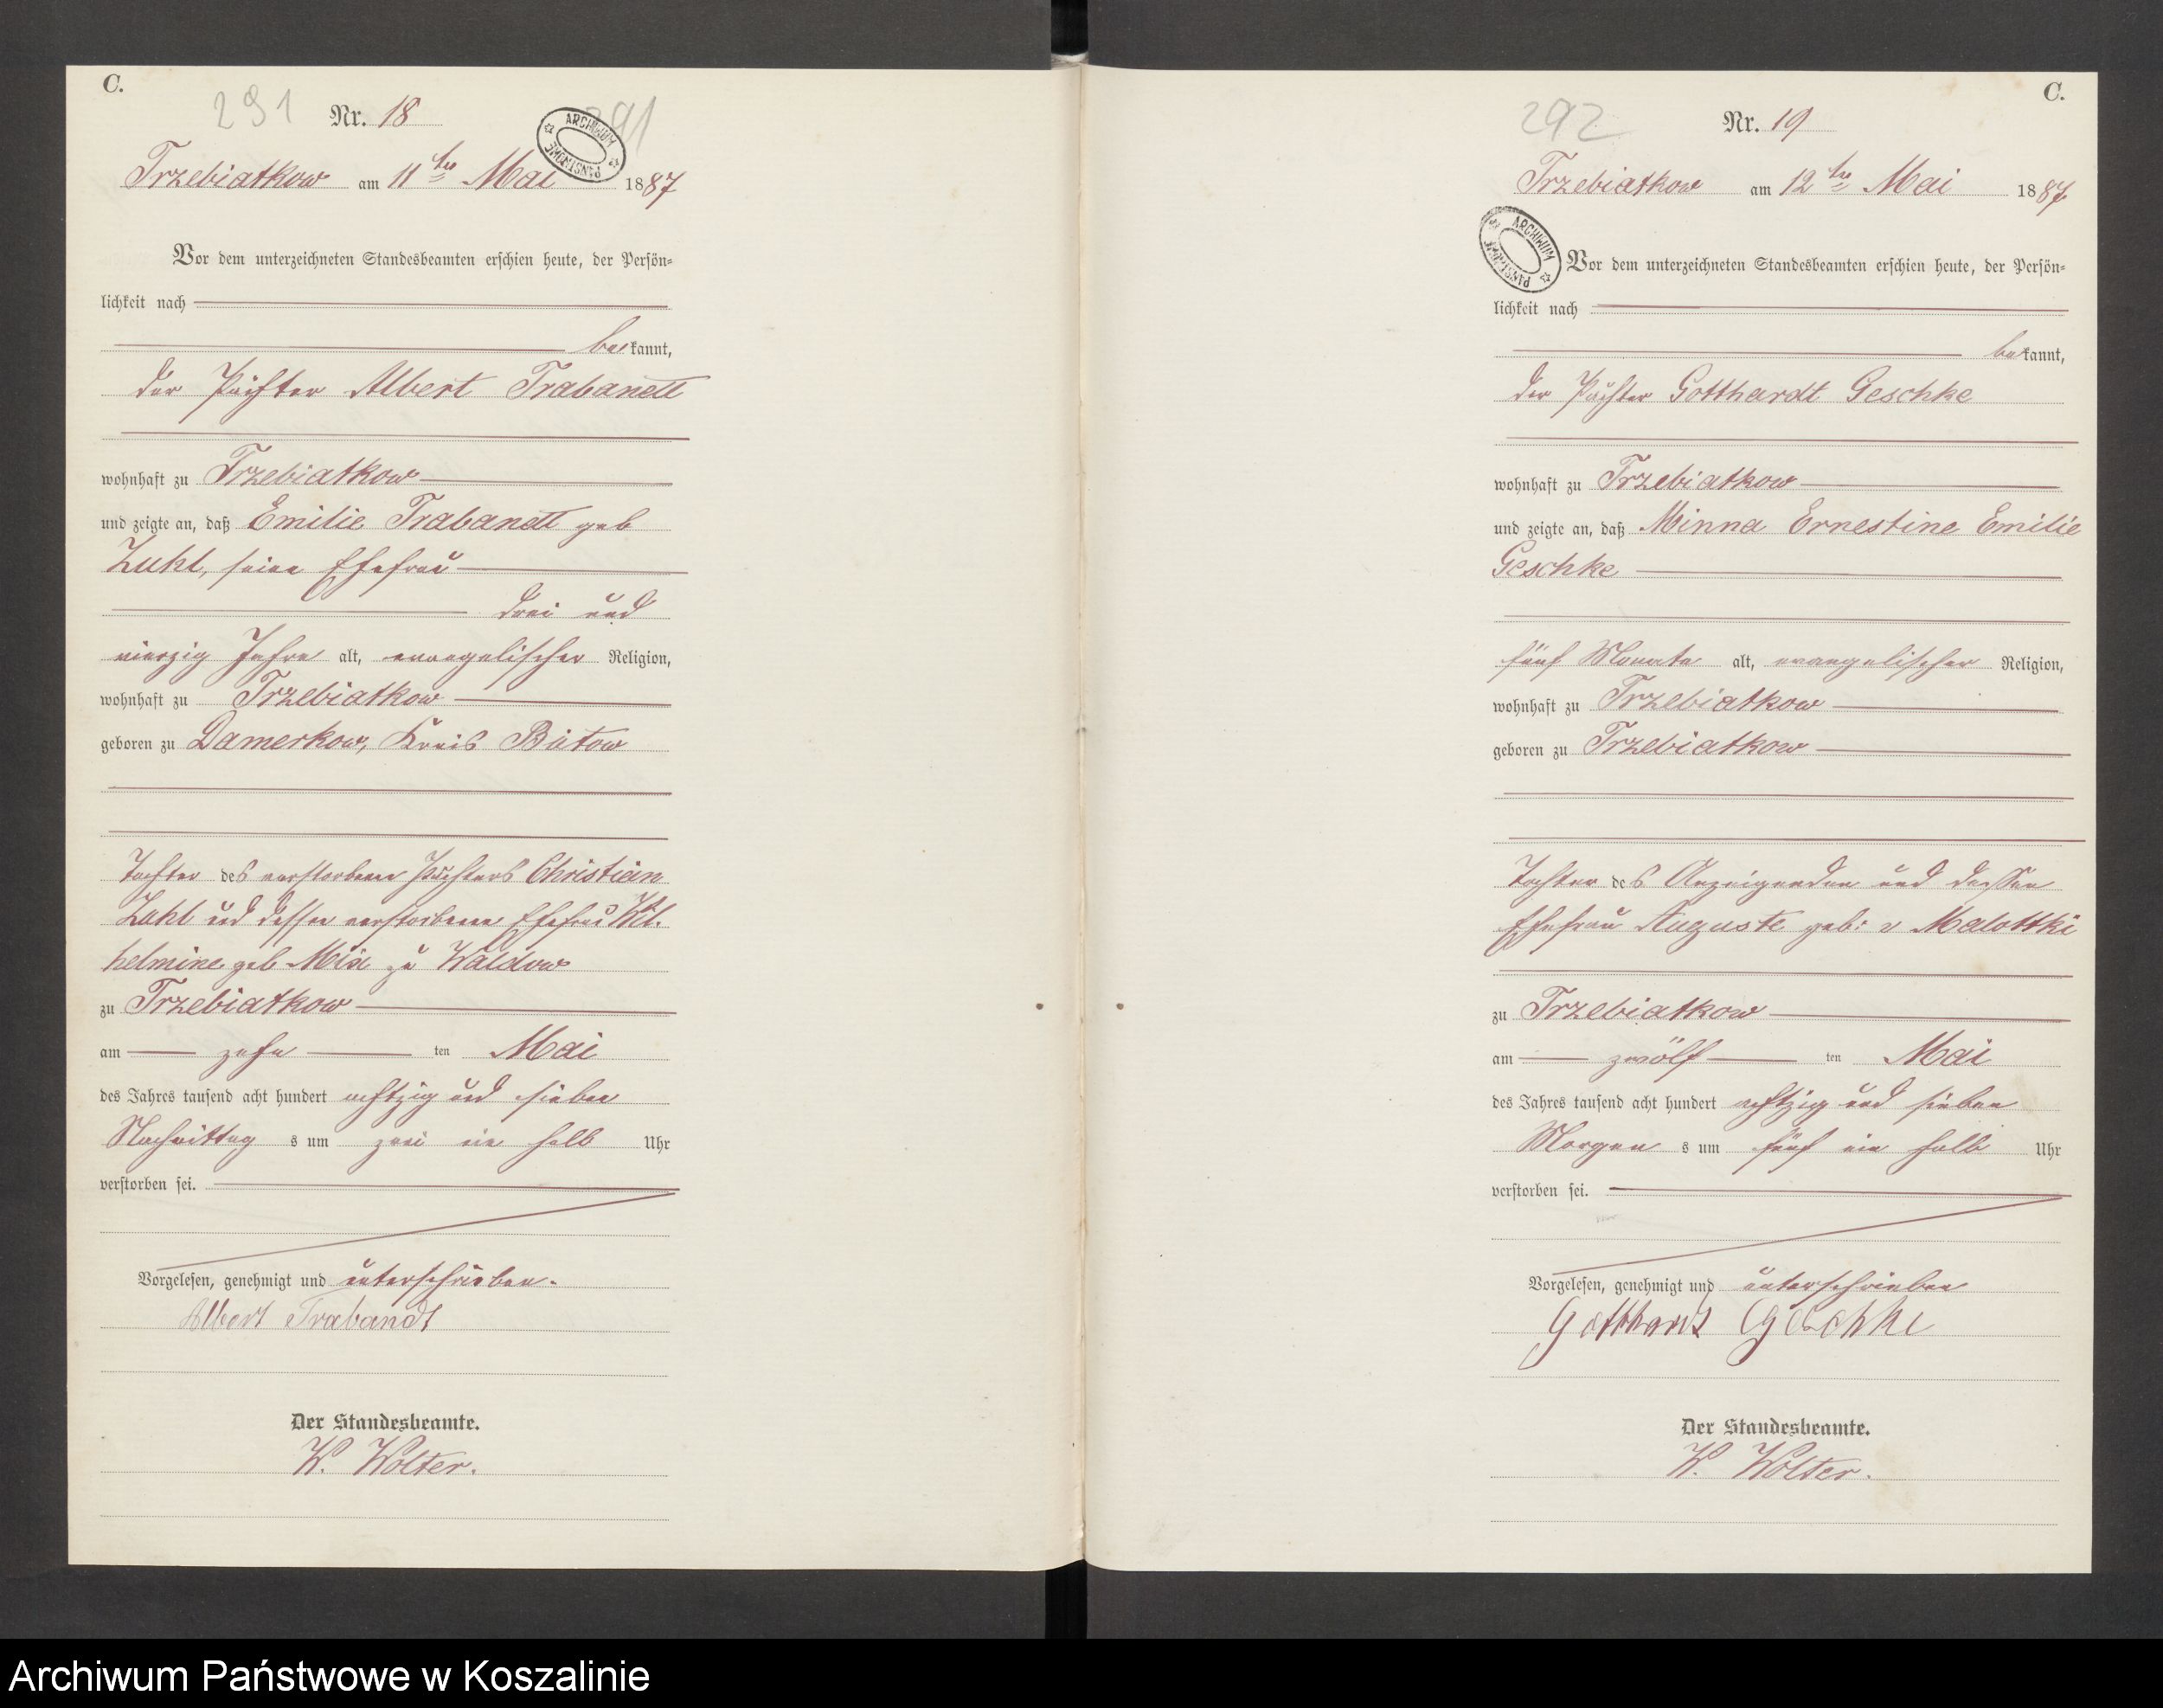 C.
291
Nr. 18
291
ARCHIWUM PAŃSTWOWE
Trzebiatkow am 11ten Mai 1887
Vor dem unterzeichneten Standesbeamten erschien heute, der Persön=
lichkeit nach
bekannt,
der Pächter Albert Trabandt
wohnhaft zu Trzebiatkow
und zeigte an, daß Emilie Trabandt geb
Zuhl, seine Ehefrau
drei und
vierzig Jahre alt, evangelischer Religion,
wohnhaft zu Trzebiatkow
geboren zu Damerkow, Kreis Bütow
Tochter des verstorbenen Pächters Christian
Zuhl und dessen verstorbenen Ehefrau Wil-
helmine geb Mix zu Waldow
zu Trzebiatkow
am zehn ten Mai
des Jahres tausend acht hundert achtzig und sieben
Nachmittag s um zwei ein halb Uhr
verstorben sei.
Vorgelesen, genehmigt und unterschrieben.
Albert Trabandt
Der Standesbeamte.
W. Wolter.
C.
292
Nr. 19
Trzebiatkow am 12ten Mai 1887
ARCHIWUM PAŃSTWOWE
Vor dem unterzeichneten Standesbeamten erschien heute, der Persön=
lichkeit nach
bekannt,
der Pächter Gotthardt Geschke
wohnhaft zu Trzebiatkow
und zeigte an, daß Minna Ernestine Emilie
Geschke
fünf Monate alt, evangelischer Religion,
wohnhaft zu Trzebiatkow
geboren zu Trzebiatkow
Tochter des Anzeigenden und dessen
Ehefrau Auguste geb: v Malottki
zu Trzebiatkow
am zwölf ten Mai
des Jahres tausend acht hundert achtzig und sieben
Morgen s um fünf ein halb Uhr
verstorben sei.
Vorgelesen, genehmigt und unterschrieben
Gotthard Geschke
Der Standesbeamte.
W. Wolter.
Archiwum Państwowe w Koszalinie